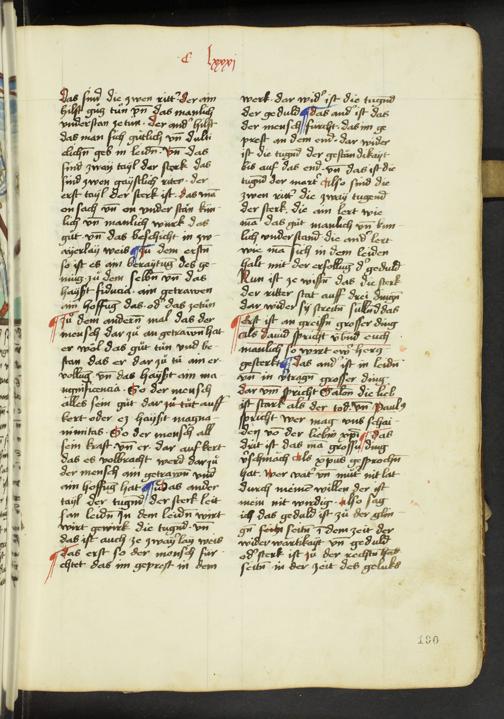 C lxxxi
das sind die zwen ritt der ain
hilft gůz tůn vn das manlich
vnderstan ze tun · der and hilft
das man sich gůtlich vn
dclichn geb in leidn · Vn das
sind zway tayl der sterk das
sind zwen gaystlich riter · der
erst tayl der sterk ist · das ma
on sach vn on vnder stan kun
lich vn manlich wurk das
gůt vn das beschicht in zw
ayerlay weis zu dem erstn
so ist es ain beraytug des ge
můtz zu dem selbn vn das
hayst fiducia · ain getrawen
ain hoffug das od das zetůn
zů dem andern mal das der
mensch dar zů an getrawn hat
er wol das gůt tůn vnd be
stan das er dar zů tů ain er
vollug vn das hayst ain ma
ugnificencia · So der mensch
alles sein gůt dar zů tůt auff
kert oder es hayst magna
nimitas · So der mensch all
sein kraft vn er dar auf kert
das es volbracht werd dar zů
der mensch ain getrawn vnd
ain hoffug hat zu das ander
tayl der tugnd der sterk leit
san leidn In dem leidn wirt
wirt gewirk die tugnd · vn
das ist auch ze zway lay weis
das erst so der mensch für
chtet das im geprest in dem
werk · dar wid ist die tugnd
der geduld das and ist das
der mensch furcht · das im ge
prest an dem end · dar wider
ist die tugnd der gestandikayt
bis auf das end · vn das ist die
tugnd der mart also sind die
zwen ritt die zway tugend
der sterk · die ain lert wie
ma das gůt manlich vn kun
lich vnder stand die and lert
wie ma sich in dem leiden
halt mit der erfollug d geduld
Nun ist ze wissn das die sterk
der ritter stat auff drei dingn
dar wider sy streitn sullnd das
erst ist an greiffn grosser ding
als dauid spricht v̈bnd euch
manlich so wirt ew herz
gesterkt das and ist in leidn
vn in vtragn grosser ding
dar vm spricht Salon die lieb
ist stark als der tod · vn Paul9
spricht wer mag vns schai
den vo der liebin xpi das
drit ist das ma grossu ding
v̈schmach als xpus gesprochn
hat · Wer vat vn můt nit lat
durch meinē willen der ist
mein nit wirdig also sag
ich das geduld ist zů der glin
gn seitn seitn ī dem zeit der
widerwärtikayt vn geduld
od sterk ist zů der rechtn hat
seitn · in der zeit des geluks
190